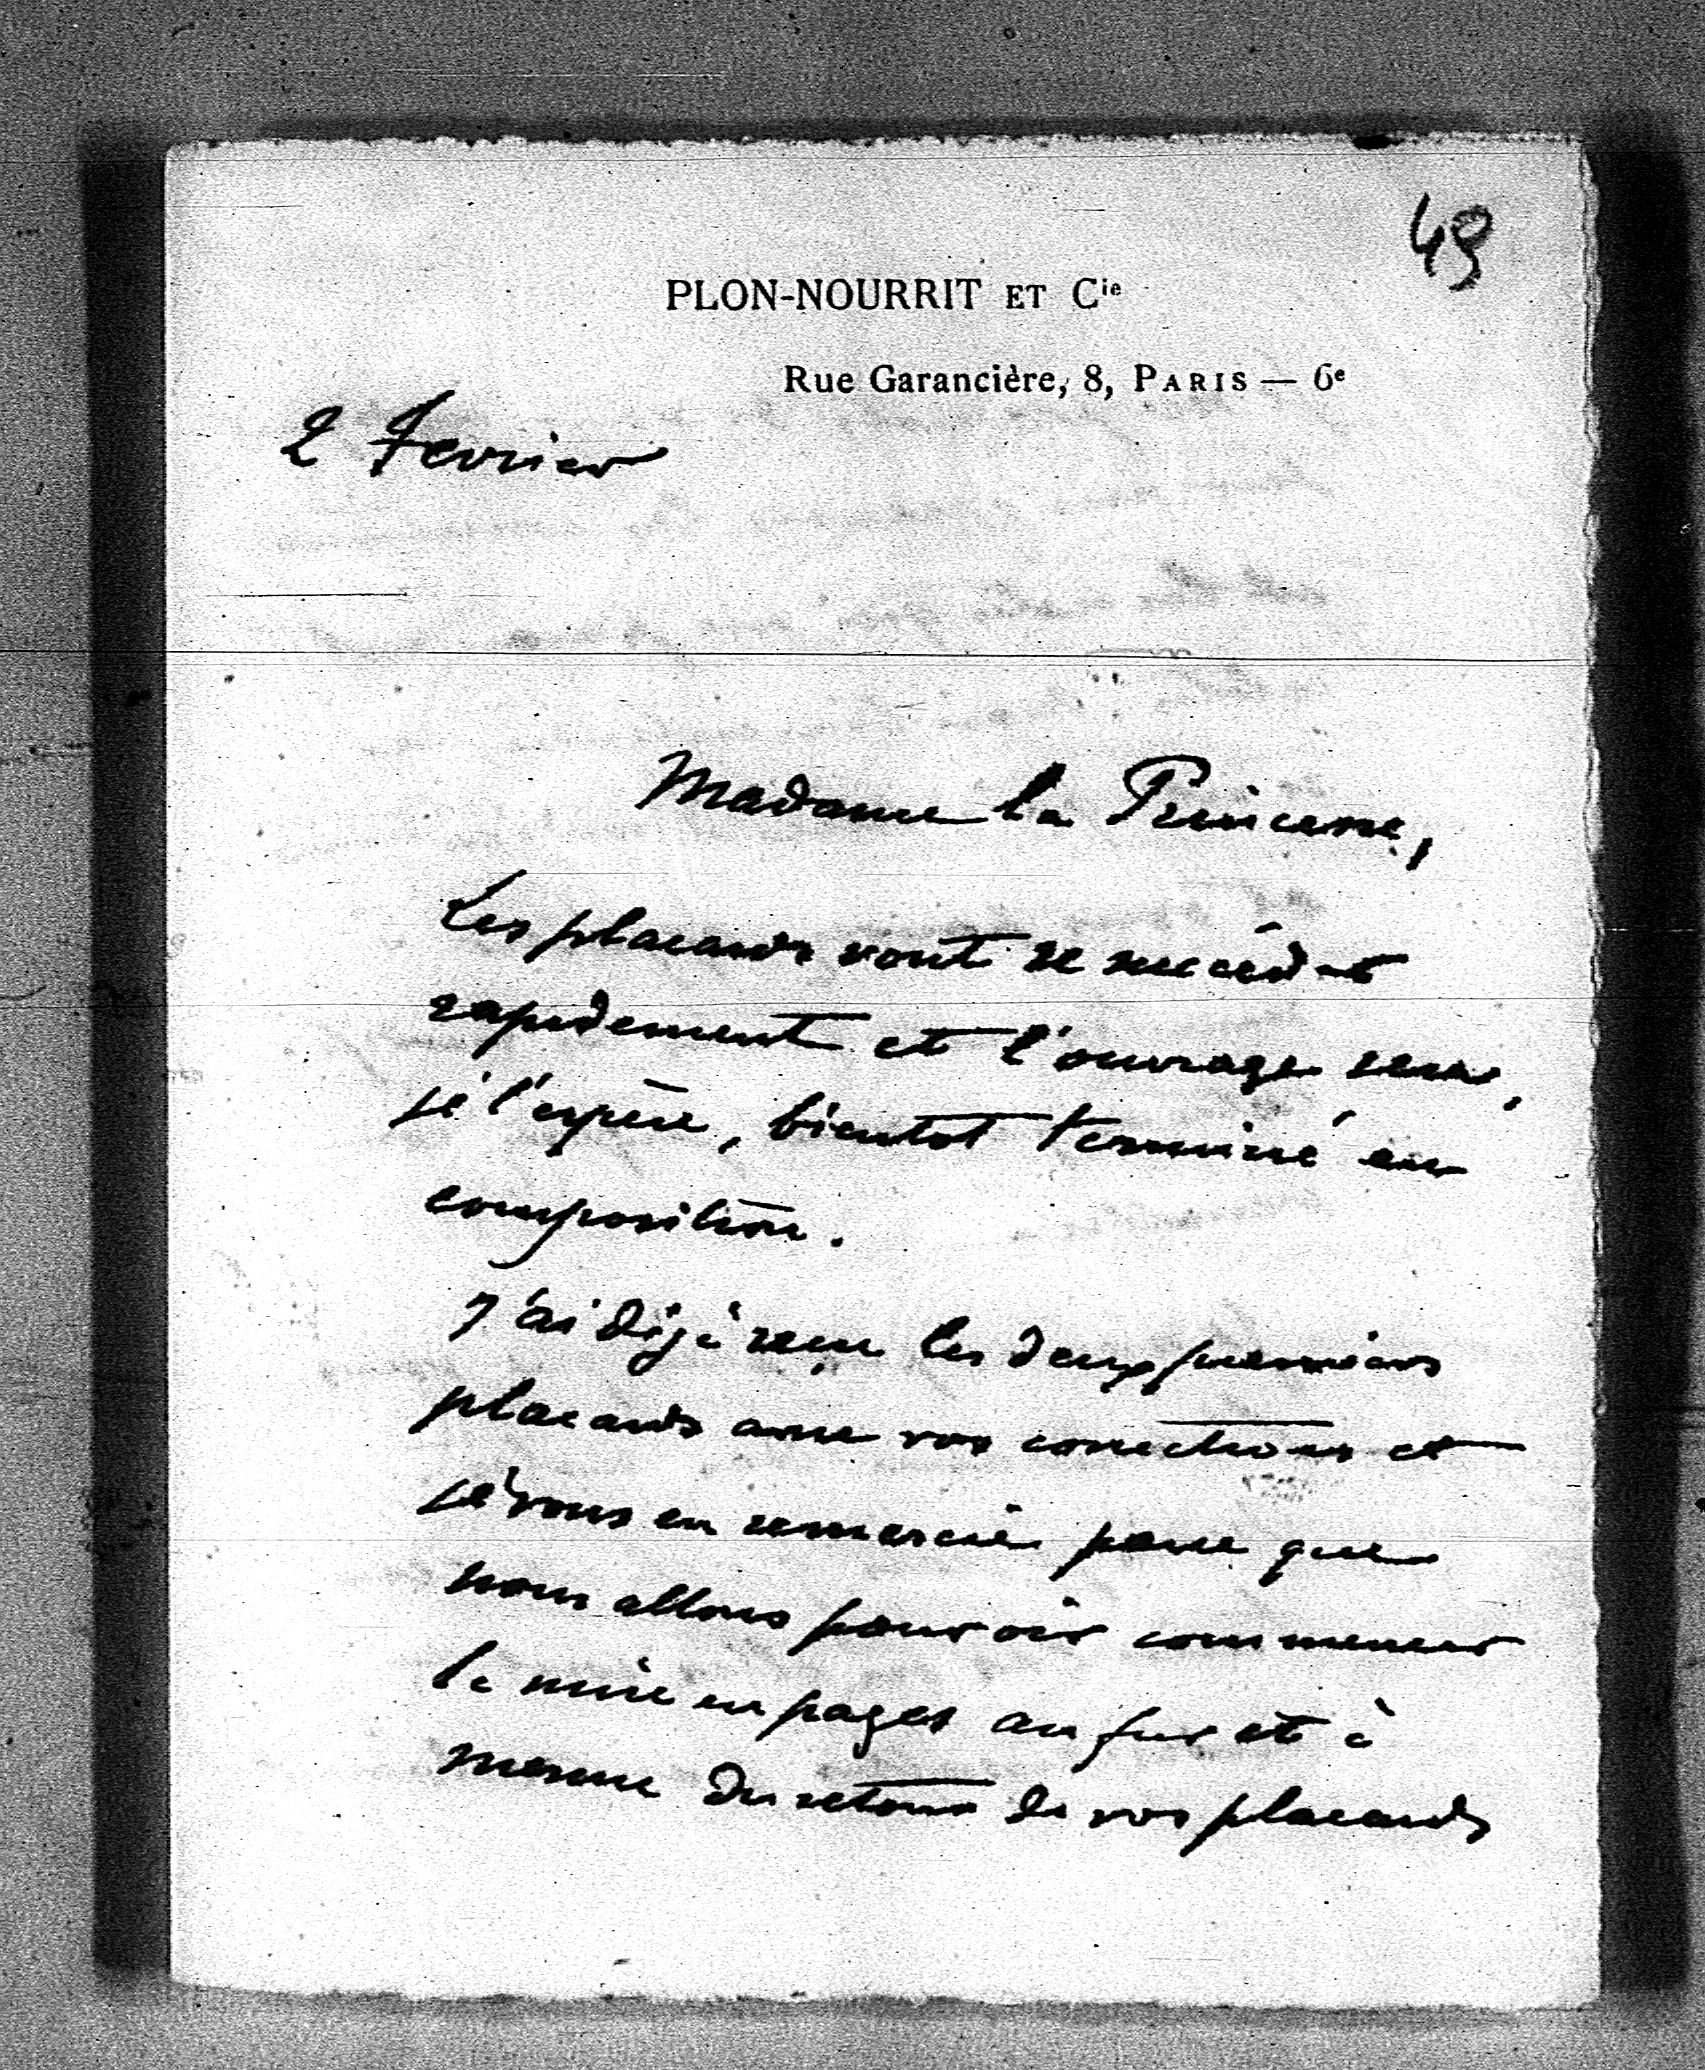 49
PLON-NOURRIT ET Cie
Rue Garancière, 8, PARIS — 6e
2 Fevrier
Madame la Princesse,
Les placards vont se succéder
rapidement et l'ouvrage sera,
je l'espère, bientot terminé en
composition.
J'ai déjà reçu les deux premiers
placards avec vos corrections et
je vous en remercie parce que
nous allons pouvoir commencer
la mise en pages au fur et à
mesure du retour de vos placards